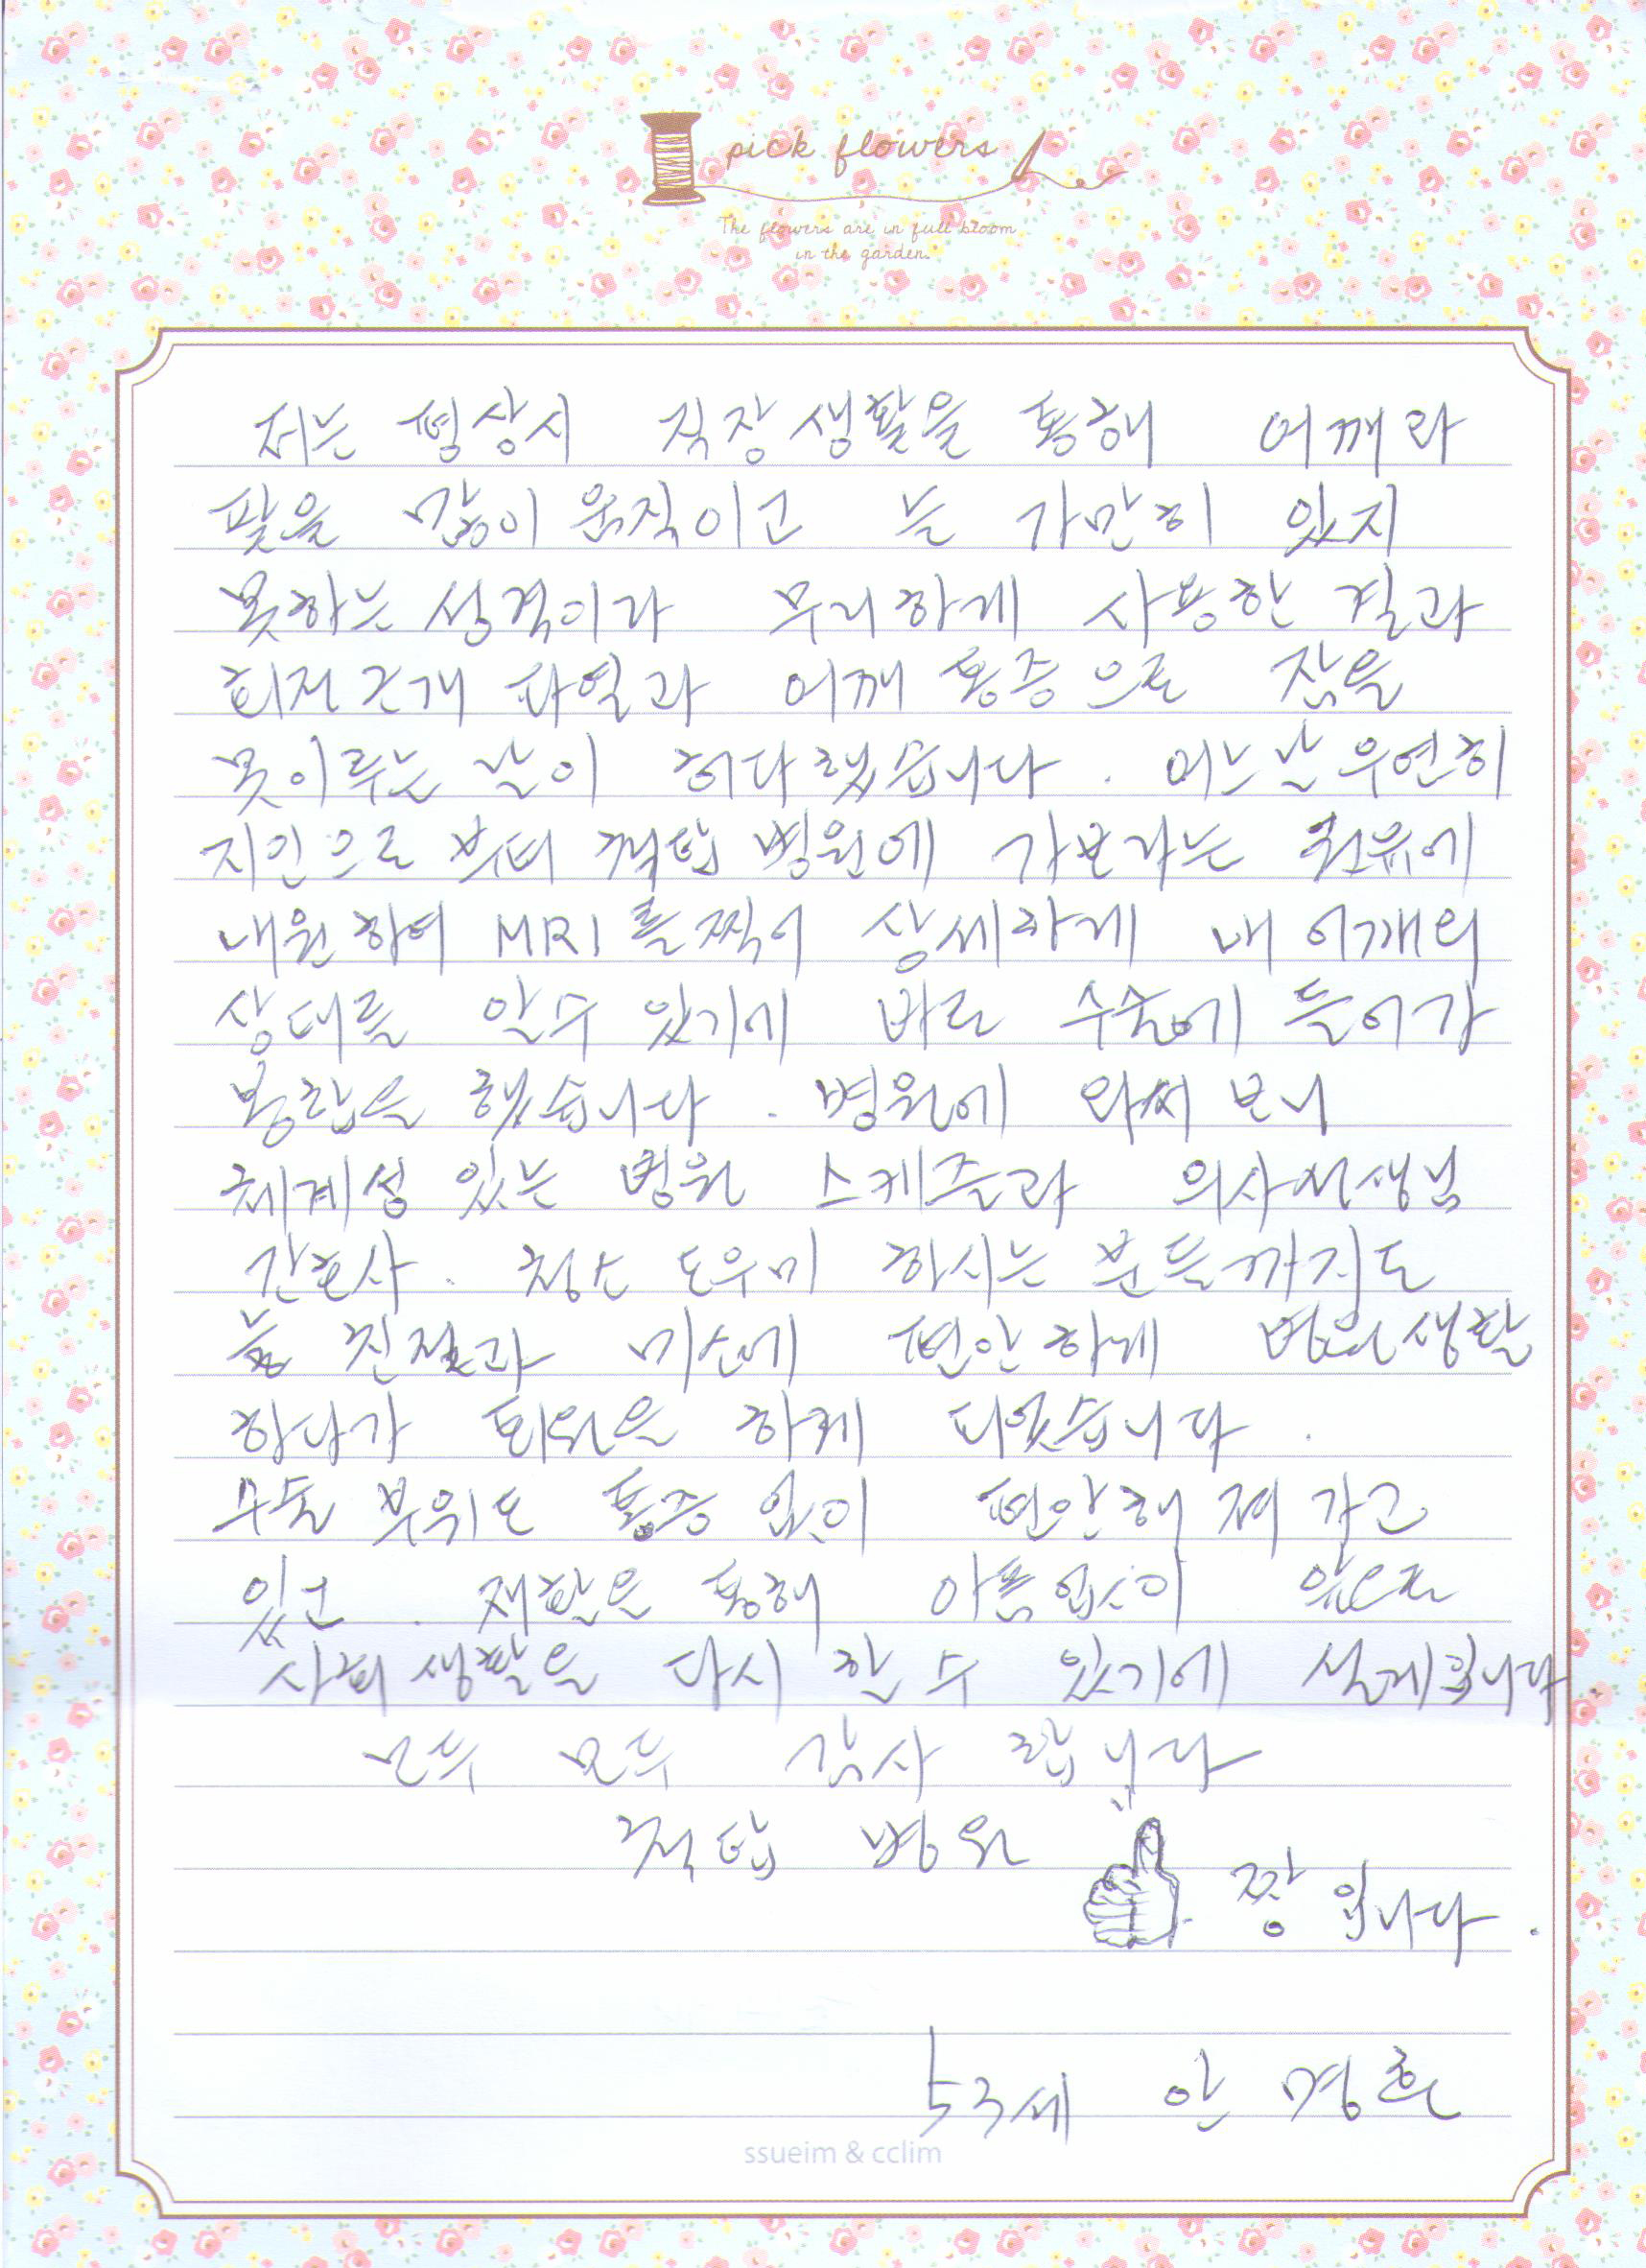 pick flowers
The flowers are in full bloom
in the garden.
저는 평상시 직장생활을 통해 어깨와
팔을 많이 움직이고 늘 가만히 있지
못하는 성격이라 무리하게 사용한 결과
회전근개 파열과 어깨 통증으로 잠을
못이루는 날이 허다했습니다. 어느날 우연히
지인으로 부터 척탑 병원에 가보라는 권유에
내원하여 MRI를 찍어 상세하게 내 어깨의
상태를 알수 있기에 바로 수술에 들어가
봉합을 했습니다. 병원에 와서 보니
체계성 있는 병원 스케즐과 의사선생님
간호사. 청소 도우미 하시는 분들까지도
늘 친절과 미소에 편안하게 병원생활
하다가 퇴원을 하게 되었습니다.
수술 부위도 통증 없이 편안해 져 가고
있고. 재활을 통해 아픔없이
사회생활을 다시 할 수 있기에 설레입니다.
모두 모두 감사 합니다
척탑 병원 짱 입니다.
53세 안 명훈
ssueim & cclim